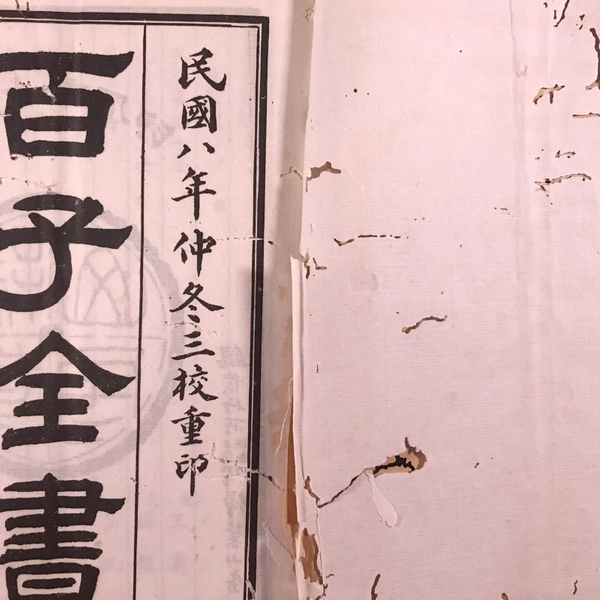 民國八年仲冬三校重印
百子全書